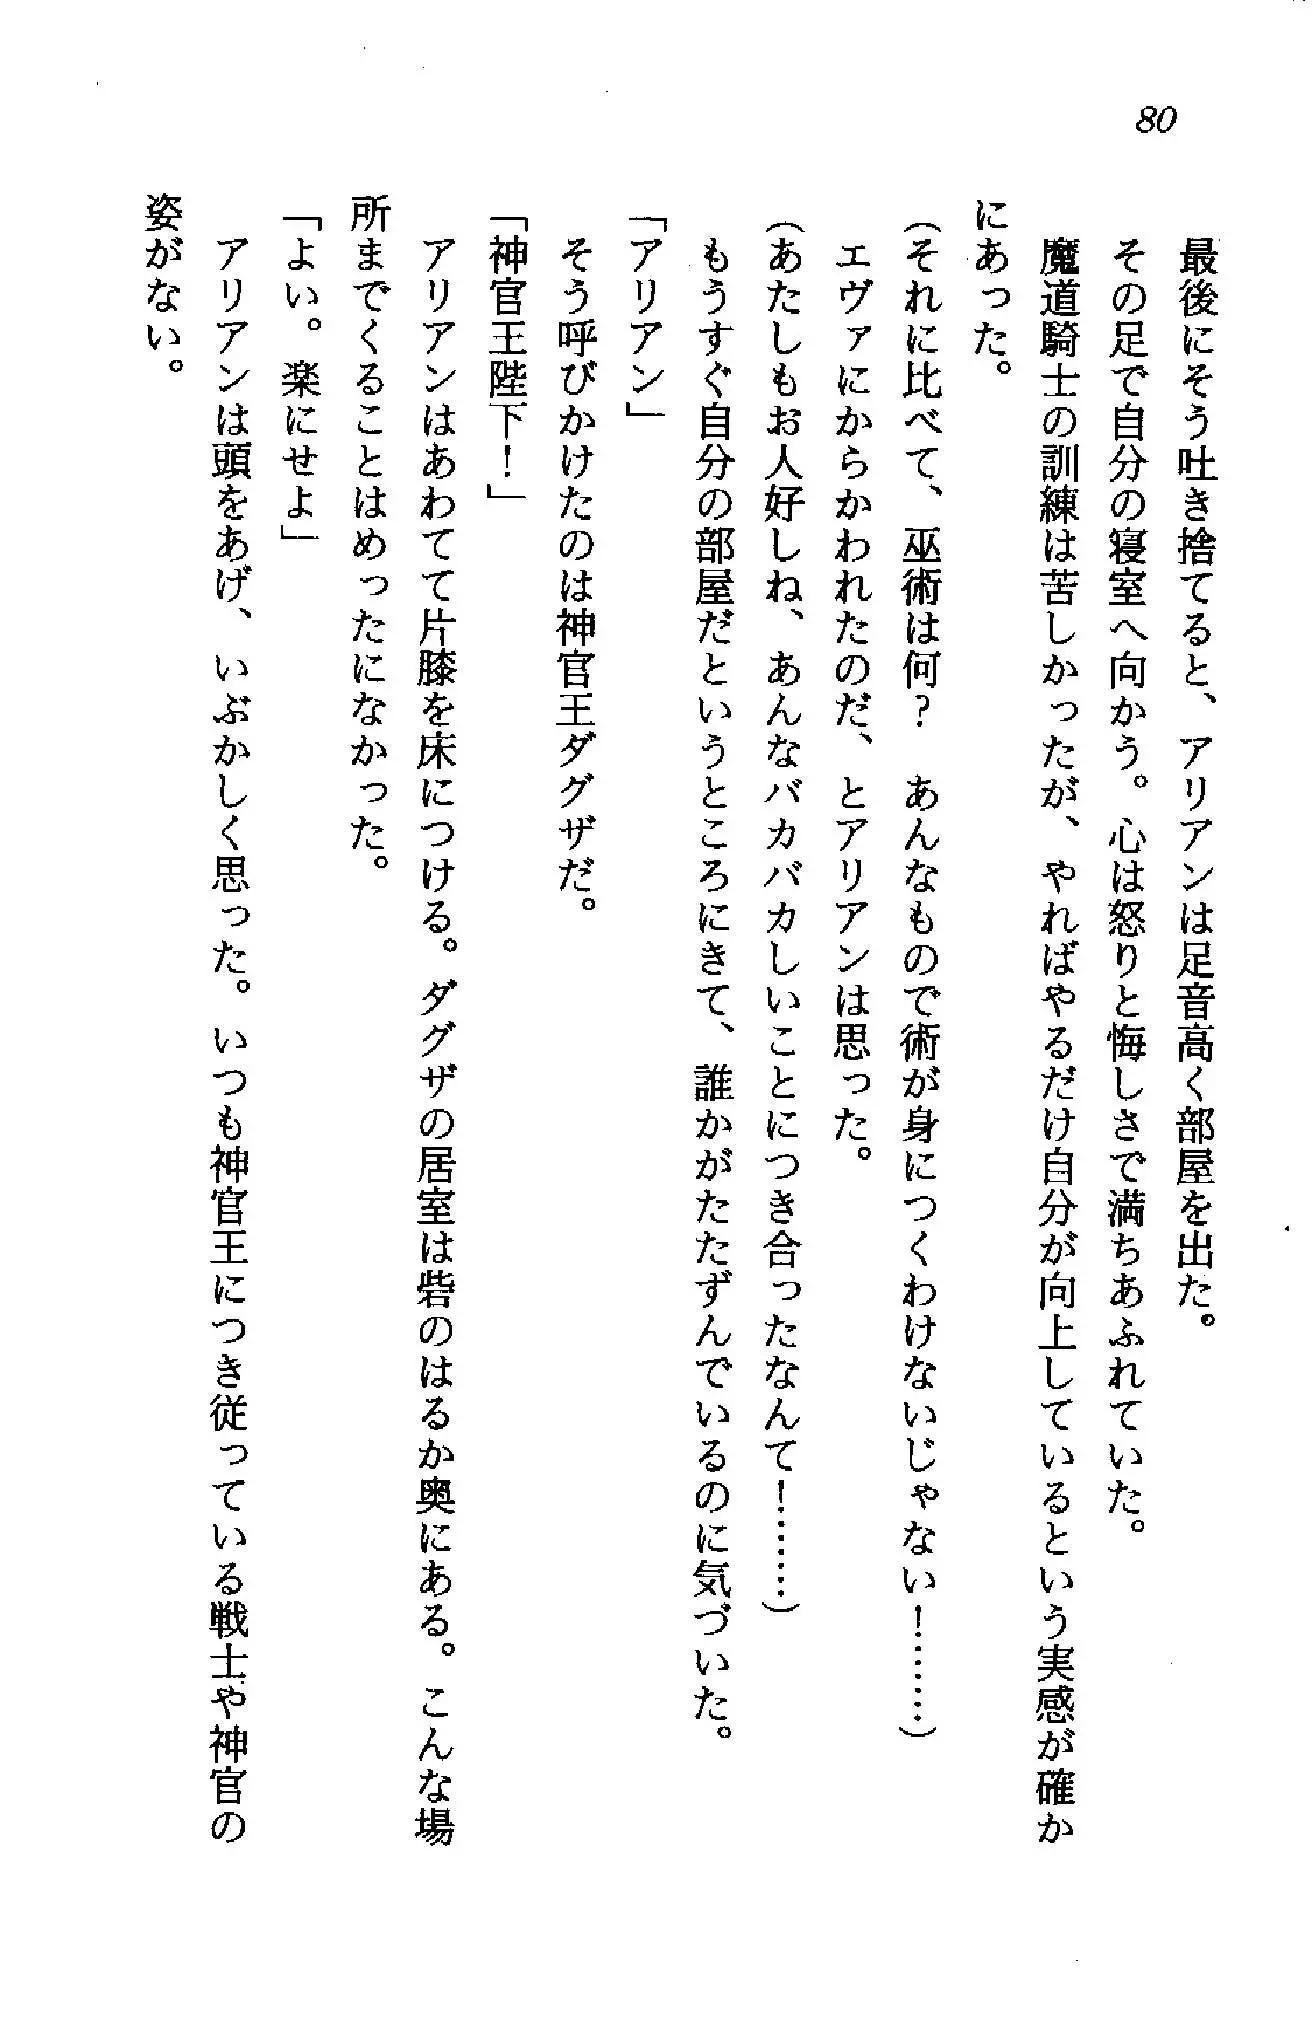 80
最後にそう吐き捨てると、アリアンは足音高く部屋を出た。
その足で自分の寝室へ向かう。心は怒りと悔しさで満ちあふれていた。
魔道騎士の訓練は苦しかったが、やればやるだけ自分が向上しているという実感が確か
にあった。
(それに比べて、巫術は何？　あんなもので術が身につくわけないじゃない！………)
エヴァにからかわれたのだ、とアリアンは思った。
(あたしもお人好しね、あんなバカバカしいことにつき合ったなんて！………)
もうすぐ自分の部屋だというところにきて、誰かがたたずんでいるのに気づいた。
「アリアン」
そう呼びかけたのは神官王ダグザだ。
「神官王陛下！」
アリアンはあわてて片膝を床につける。ダグザの居室は砦のはるか奥にある。こんな場
所までくることはめったになかった。
「よい。楽にせよ」
アリアンは頭をあげ、いぶかしく思った。いつも神官王につき従っている戦士や神官の
姿がない。